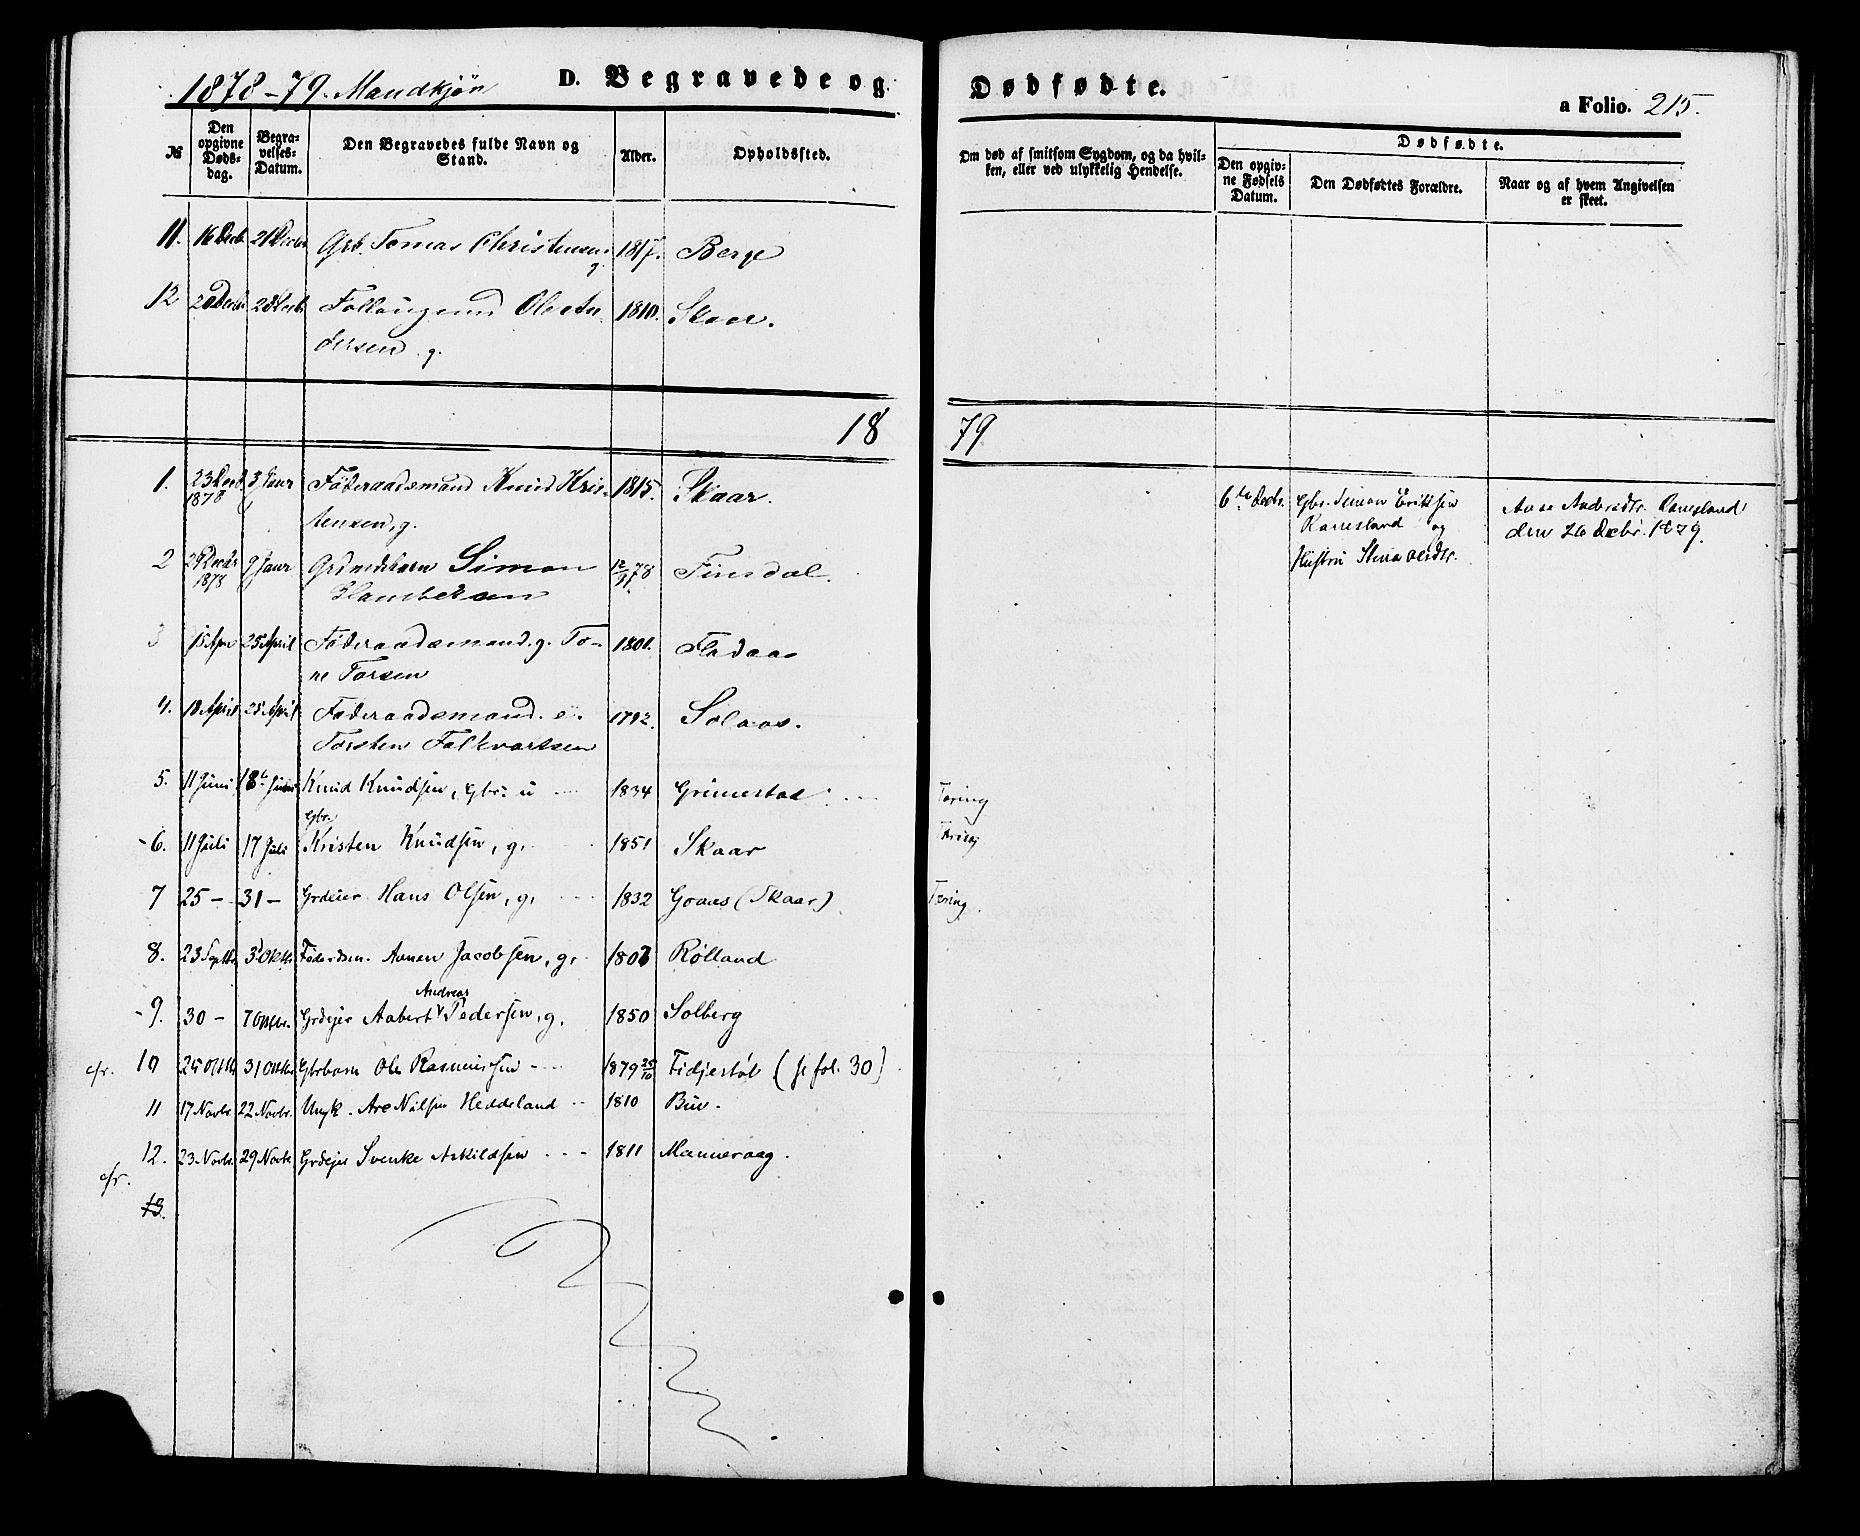 1878-79. Mandkjøn D. Begravede og Dødfødte. a Folio. 215.
№ Den opgivne Døds-dag. Begra-velses-Datum. Den Begravedes fulde Navn og Stand. Alder. Opholdssted. Om død af smitsom Sygdom, og da hvil-ken, eller ved ulykkelig Hendelse. Dødfødte. Den opgiv-ne Fødsels Datum. Den Dødfødtes Forældre. Naar og af hvem Angivelsen er skeet.
11. 16 Decb. 21 Decbr Grb. Tomas Christensen g. 1817. Berge
12 20 Decbr 28 Decb. Ole An-
dersen. g. 1810. Skaar.
18 79
1. 23 Decb. 1878 3 Janr Føderaadsmand Knud Kris-
tensen, g. 1815. Skaar.
6te Decbr. Gbr. Simon Eriksen
Ramsland og
Hustru Olsdtr.
Aase Andersdtr. Ramsland
den 26 Decbr. 1879.
2 29 Decbr 1878 9 Janr Simon
12/9 78 Finsdal.
3 15 Apr 25 April Føderaadsmand. g. To-
ne Torsen 1801. Fladaas
4. 18 April 25 April Føderaadsmand. e.
Torsten Falkvartsen 1792. Solaas.
5. 11 Juni 18t Juni Knud Knudsen, Gbr. u 1834 Grimestad Tæring
Gbr.
-6. 11 Juli 17 Juli Kristen Knudsen, g. 1851 Skaar Tæring
7 25 - 31 - Grdeier Hans Olsen, g. 1832 Goaas (Skaar) Tæring.
8. 23 Septbr. 3 Oktbr. Jacobsen, g. Rølland
Andreas
-9. 30 - 7 Oktbr. Grdejer Aabert Pedersen, g. 1850 Solberg
cfr. 10 25 Oktbr 31 Oktbr Gbrbarn Ole Rasmussen 1879 25/10 Fidjestøl (se fol. 30)
11 17 Novbr. 22 Novbr. Ungk. Are Nilsen Heddeland 1810 Buv.
12. 23. Novbr. 29 Novbr Grdejer Svenke Askildsen 1811
cfr.
13.